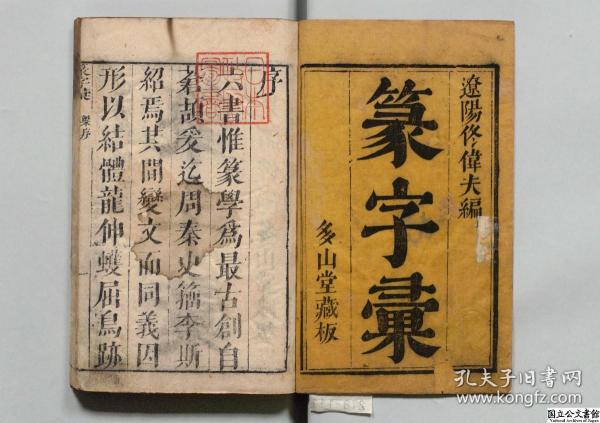 遼陽佟偉夫編
篆字彙
多山堂藏板
序
六書惟篆學爲最古創自
蒼頡爰迄周秦史籀李斯
紹焉其間變文而同義因
形以結體龍伸蠖屈鳥跡
孔夫子旧书网
www.kongfz.com
国立公文書館
National Archives of Japan